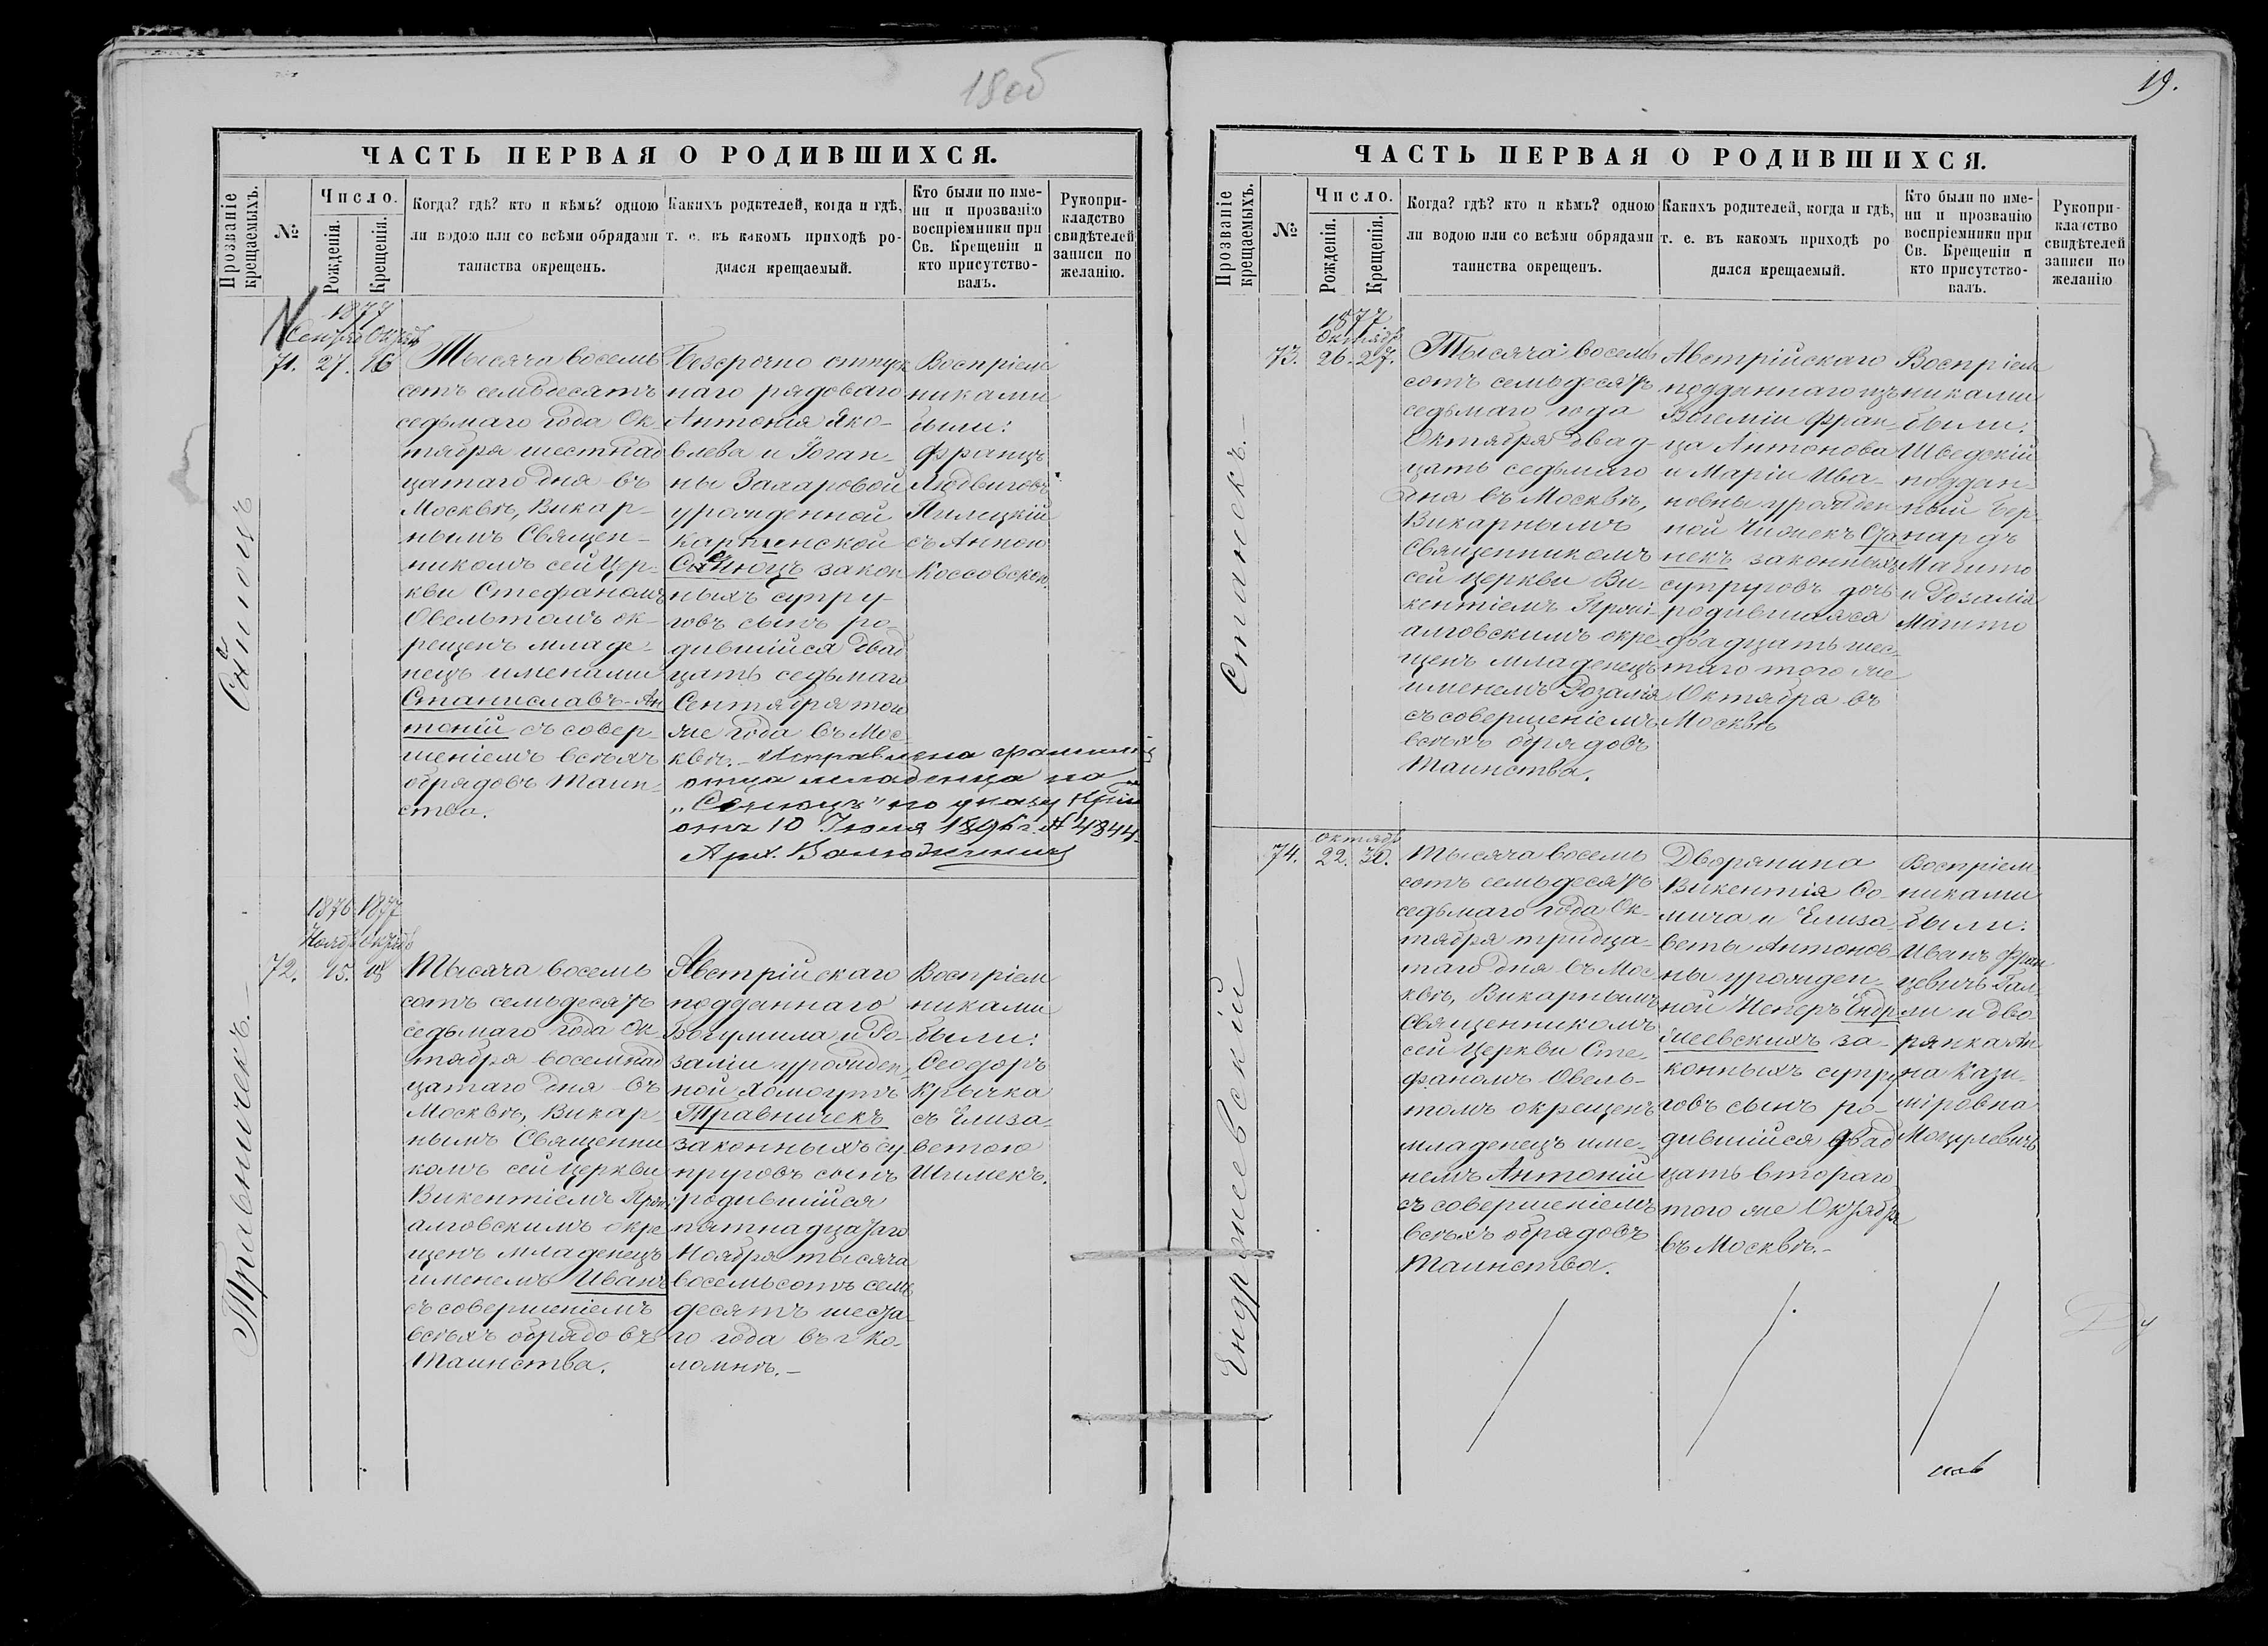 18об
ЧАСТЬ ПЕРВАЯ О РОДИВШИХСЯ.
Прозваніе крещаемыхъ.
№
Число.
Рожденія.
Крещенія.
Когда? гдѣ? кто и кѣмъ? одною
ли водою или со всѣми обрядами
таинства окрещенъ.
Какихъ родителей, когда и гдѣ,
т. е. въ какомъ приходѣ ро-
дился крещаемый.
Кто были по име-
ни и прозванію
воспріемники при
Св. Крещеніи и
кто присутство-
валъ.
Рукопри-
кладство
свидѣтелей
записи по
желанію.
1877
71. 27. 16
Тысяча восемь
сотъ семьдесятъ
седьмаго года Ок-
тября шестнад
цатаго дня въ
Москвѣ, Викар-
нымъ Священ-
никомъ сей Цер-
кви Стефаномъ
Овельтомъ ок-
рещенъ младе-
нецъ именами
Станиславъ-Ан
тоній съ совер-
шеніемъ всѣхъ
обрядовъ Таин-
ства.
Безсрочно отпуск
наго рядоваго
Антонія Яко-
влева и Іоган-
ны Захаровой
урожденной
закон
ныхъ супру-
говъ сынъ ро-
дившійся двад
цать седьмаго
Сентября того
же года въ Мос-
квѣ.- Исправлена фамилія
отца младенца на
по указу
отъ 10 Іюля 1896 г. № 4844.
Арх.
Воспріем
никами
были:
Францъ
Людвиговъ
Пилецкій
съ Анною
Коссовской.
Травничекъ.-
1876 1877
Нояб Октяб
72. 15. 18
Тысяча восемь
сотъ семьдесятъ
седьмаго года Ок-
тября восемнад
цатаго дня въ
Москвѣ, Викар-
нымъ Священни
комъ сей Церкви
Викентіемъ
алговскимъ окре
щенъ младенецъ
именемъ Иванъ
съ совершеніемъ
всѣхъ обрядовъ
Таинства.
Австрійскаго
подданнаго
Богумила и Ро-
заліи урожден-
ной Хомутъ
Травничекъ
законныхъ су-
пруговъ сынъ
родившійся
пятнадцатаго
Ноября тысяча
восемьсотъ семь
десятъ шеста-
го года въ г Ко-
ломнѣ.-
Воспріем
никами
были:
Ѳеодоръ
Крычка
съ Елиза-
ветою
Шимекъ.
19.
ЧАСТЬ ПЕРВАЯ О РОДИВШИХСЯ.
Прозваніе крещаемыхъ.
№
Число.
Рожденія.
Крещенія.
Когда? гдѣ? кто и кѣмъ? одною
ли водою или со всѣми обрядами
таинства окрещенъ.
Какихъ родителей, когда и гдѣ,
т. е. въ какомъ приходѣ ро
дился крещаемый.
Кто были по име-
ни и прозванію
воспріемники при
Св. Крещеніи и
кто присутство-
валъ.
Рукопри-
кладство
свидѣтелей
записи по
желанію
Станекъ.-
1877
Октябр
73. 26. 27.
Тысяча восемь
сотъ семьдесятъ
седьмаго года
Октября двад-
цать седьмаго
дня въ Москвѣ,
Викарнымъ
Священникомъ
сей Церкви Ви-
кентіемъ
алговскимъ окре-
щенъ младенецъ
именемъ Розалія
съ совершеніемъ
всѣхъ обрядовъ
Таинства.
Австрійскаго
подданнаго изъ
Богеміи Фран-
ца Антонова
и Маріи Ива-
новны урожден
ной Чижекъ Ста
некъ законныхъ
супруговъ дочь
родившаяся
двадцать шес-
таго того же
Октября въ
Москвѣ
Воспріем
никами
были:
Шведскій
поддан-
ный Бер-
нардъ
Магито
и Розалія
Магито
Ендржеевскій
Октяб
74. 22. 30.
Тысяча восемь
сотъ семьдесятъ
седьмаго года Ок-
тября тридца-
таго дня въ Мос-
квѣ, Викарнымъ
Священникомъ
сей Церкви Сте-
фаномъ Овель-
томъ окрещенъ
младенецъ име-
немъ Антоній
съ совершеніемъ
всѣхъ обрядовъ
Таинства.
Дворянина
Викентія Со-
мича и Елиза-
веты Антонов-
ны урожден-
ной Ендр
жеевскихъ за-
конныхъ супру
говъ сынъ ро-
дившійся двад
цать втораго
того же Октября
въ Москвѣ.-
Воспріем
никами
были:
Иванъ Фран
цевичъ Гал-
ли и дво
рянка Ан
на Кази-
міровна
Моцулевичъ